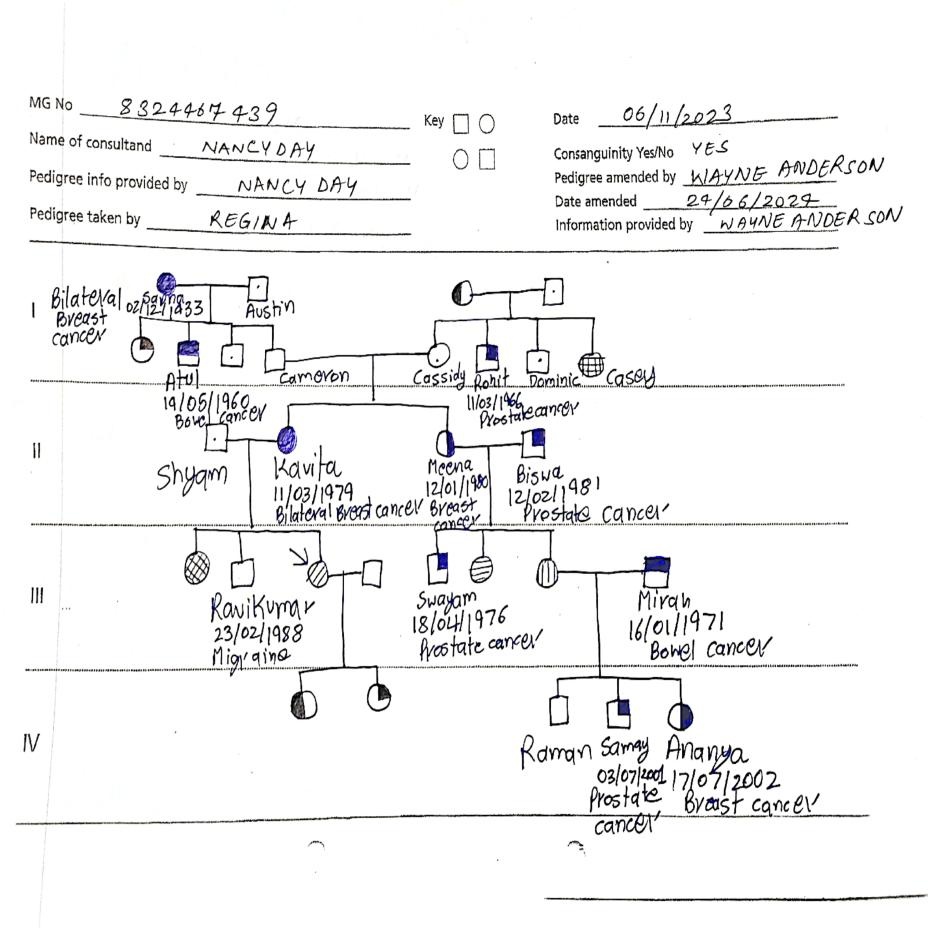 MG No 8324467439
Key
Date 06/11/2023
Name of consultand NANCY DAY
Consanguinity Yes/No YES
Pedigree info provided by NANCY DAY
Pedigree amended by WAYNE ANDERSON
Date amended 24/06/2024
Pedigree taken by REGINA
Information provided by WAYNE ANDERSON
I
Bilateral
Breast
cancer
Savina
02/12/1933
Austin
Atul
19/05/1960
Bowel cancer
Cameron
Cassidy
Rohit
11/03/1966
Prostate cancer
Dominic
Casey
II
Shyam
Kavita
11/03/1979
Bilateral Breast cancer
Meena
12/01/1980
Breast
cancer
Biswa
12/02/1981
Prostate cancer
III
Ravikumar
23/02/1988
Migraine
Swayam
18/04/1976
Prostate cancer
Mirah
16/01/1971
Bowel cancer
IV
Raman
Samay
03/07/2001
Prostate
cancer
Ananya
17/07/2002
Breast cancer